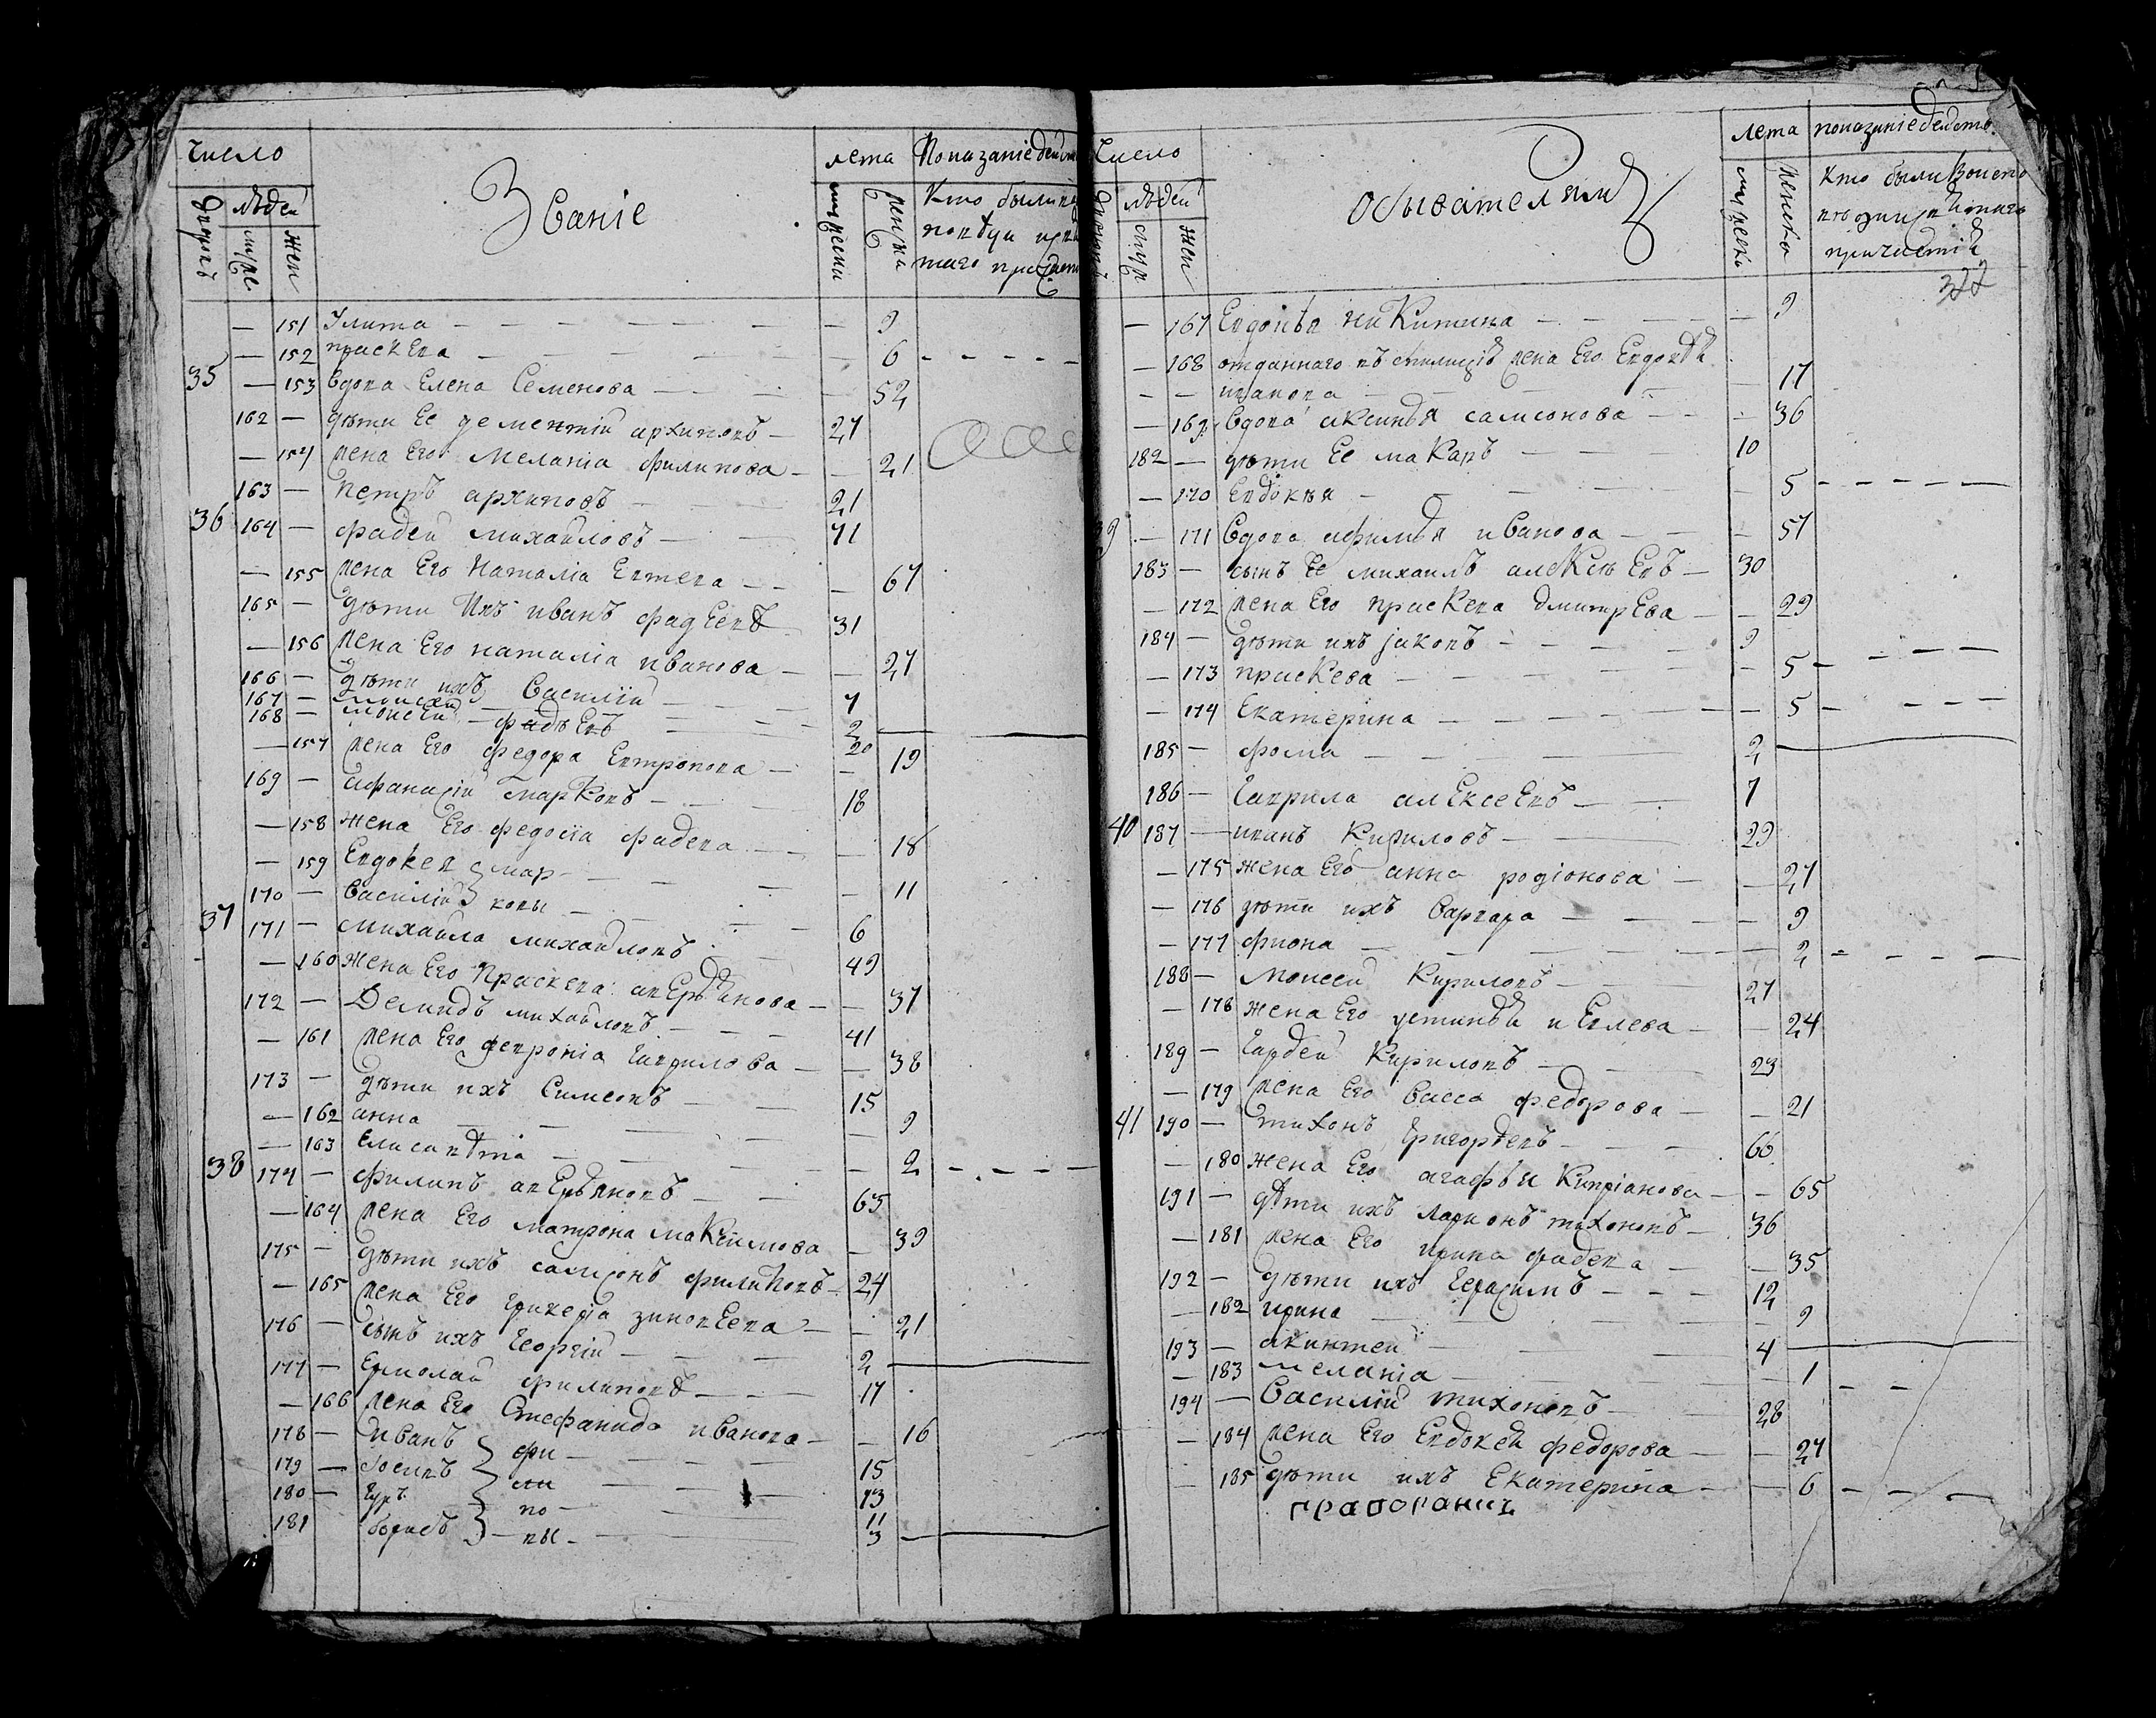 Число
лѣдей
жен
Званiе
лета
Показанiе
Кто были
— 151 Улита — — 9
— 152 праскева — — 6
35 — 153 вдова Елена Семенова — — 52
162 — дѣти Ее дементiй архиповъ — 27
— 154 жена Его Меланiа филипова — — 21
163 — петръ архиповъ — 21
36 164 — фадей михайловъ — 71
— 155 жена Его наталiа — — 67
165 — дѣти Ихъ иванъ фадѣевъ 31
— 156 жена Его наталiа иванова — — 27
166 — дѣти ихъ Василiй — 7
167 — — 2
168 — Моисей фадѣевъ — 20
— 157 жена Его федора — — 19
169 — афанасiй Марковъ — 18
— 158 жена Его федосiа фадеева — — 18
— 159 Евдокея мар — — 11
170 — Василiй ковы — 6
37 171 — михайла михайловъ 49
— 160 жена Его Праскева аверьянова — — 37
172 — Демидъ михайловъ — 41
— 161 жена Его февронiа Гаврилова — — 38
173 — дѣти ихъ Симеонъ — 15
— 162 анна — — 9
— 163 Елисавѣта — — 2
38 174 — филипъ аверьяновъ — 65
— 164 жена Его матрона максимова — 39
175 — дѣти ихъ самсонъ филиповъ — 24
— 165 жена Его гликерiа зиновеева — — 21
176 — сынъ ихъ Георгiй — 2
177 — Ермолай филиповъ — 17
— 166 жена Его Стефанида иванова — — 16
178 — Иванъ фи — 15
179 — Iосипъ ли — 13
180 — Гуръ по — 11
181 борисъ — вы — 3
Число
лѣдей
жен
обывателям
лета
показанiе
кто были
322
— 167 Евдокѣя никитина — — 9
— 168 отданнаго жена Его
— — иванова — — 17
— 169 вдова аксинья самсонова — — 36
182 — дѣти Ее макаръ — 10
— 170 Евдокѣя — — 5
9 — 171 вдова афимья иванова — — 57
183 — сынъ Ее михаилъ алексѣевъ — 30
— 172 жена Его праскева дмитрева — — 29
184 — дѣти ихъ яковъ — 9
— 173 праскева — — 5
— 174 Екатерина — — 5
185 — фома — 2
186 — Гаврила алексеевъ — 7
40 187 — иванъ Кириловъ — 29
— 175 жена Его анна родiонова — — 27
— 176 дѣти ихъ варвара — — 9
— 177 фиона — — 2
188 — Моисей Кириловъ — 27
— 178 жена Его устинья иевлева — — 24
189 — Гардей Кириловъ — 23
— 179 жена Его васса федорова — — 21
41 190 — тихонъ Григорьевъ — 66
— 180 жена Его агафья Кипрiанова — — 65
191 — дѣти ихъ ларионъ тихоновъ — 36
— 181 жена Его ирина фадеева — — 35
192 — дѣти ихъ Герасимъ — 12
— 182 ирина — — 9
193 — акинтей — 4
— 183 меланiа — — 1
194 — Василiй тихоновъ — 28
— 184 жена Его Евдокея федорова — — 27
— 185 дѣти ихъ Екатерина — — 6